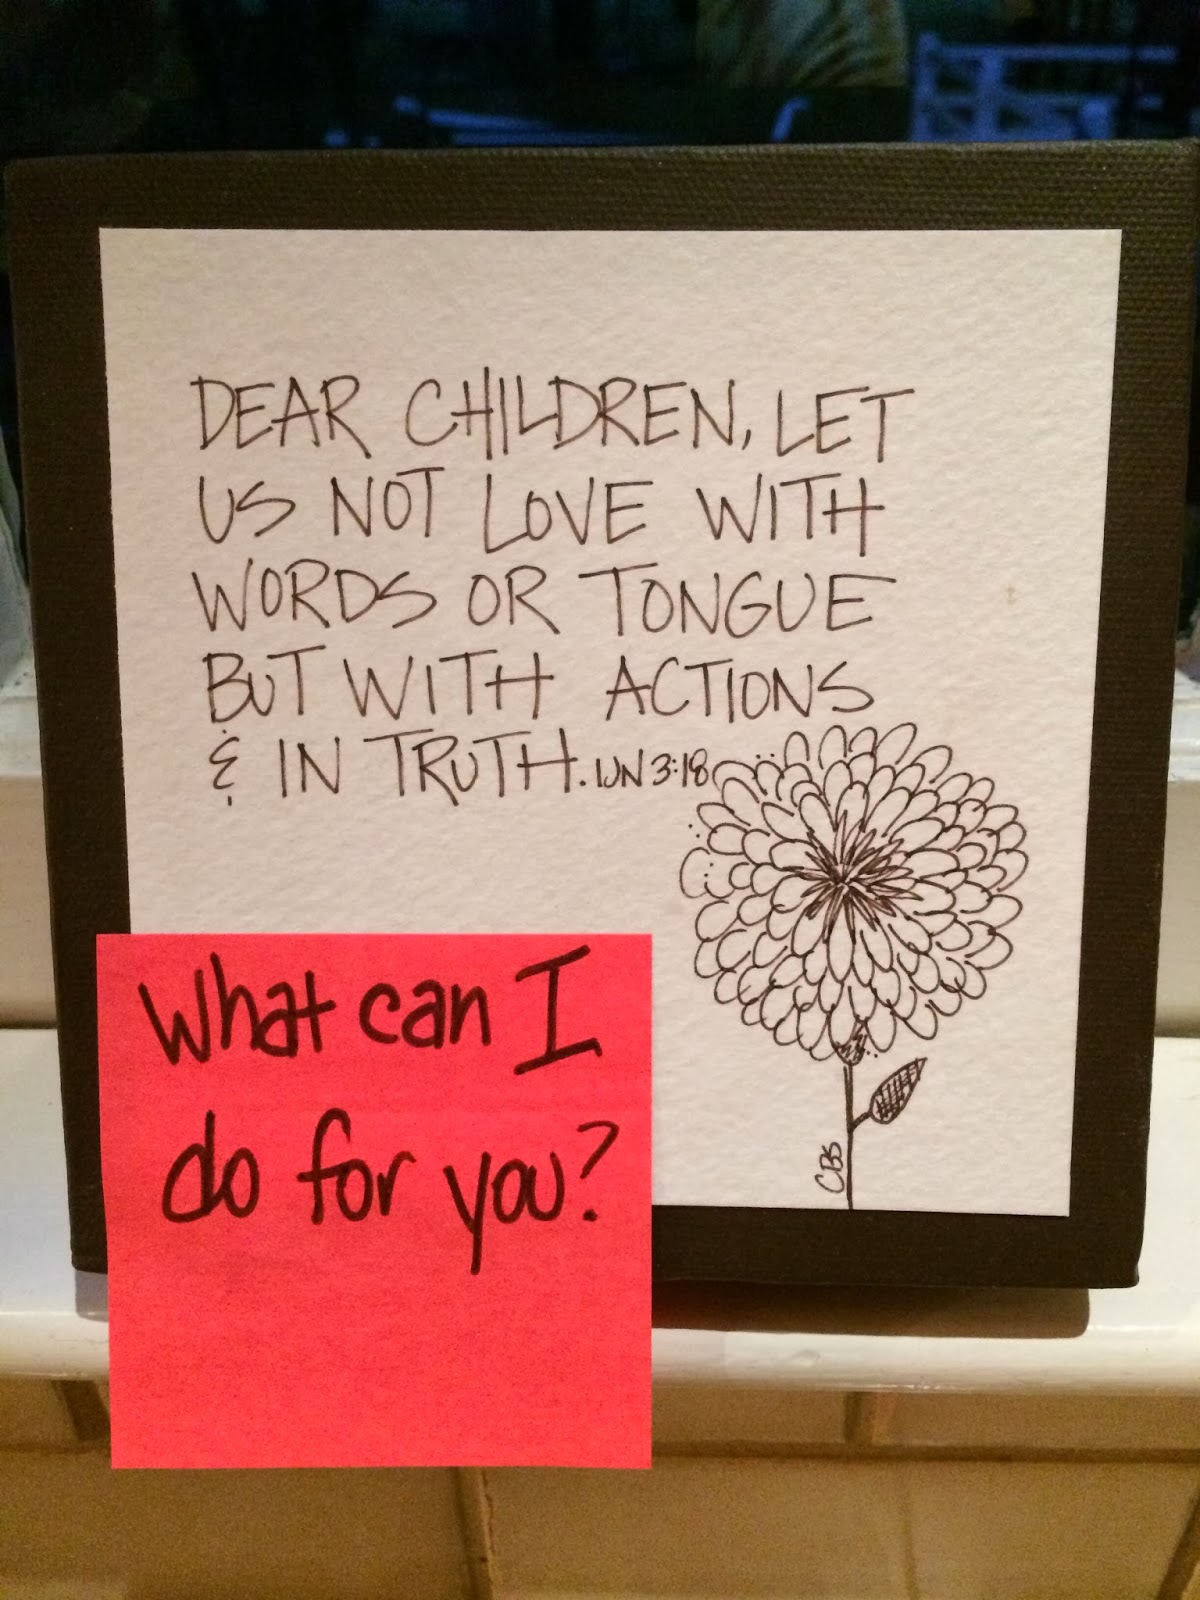 DEAR CHILDREN, LET
US NOT LOVE WITH
WORDS OR TONGUE
BUT WITH ACTIONS
& IN TRUTH. 1JN 3:18
What can I
do for you?
CBS